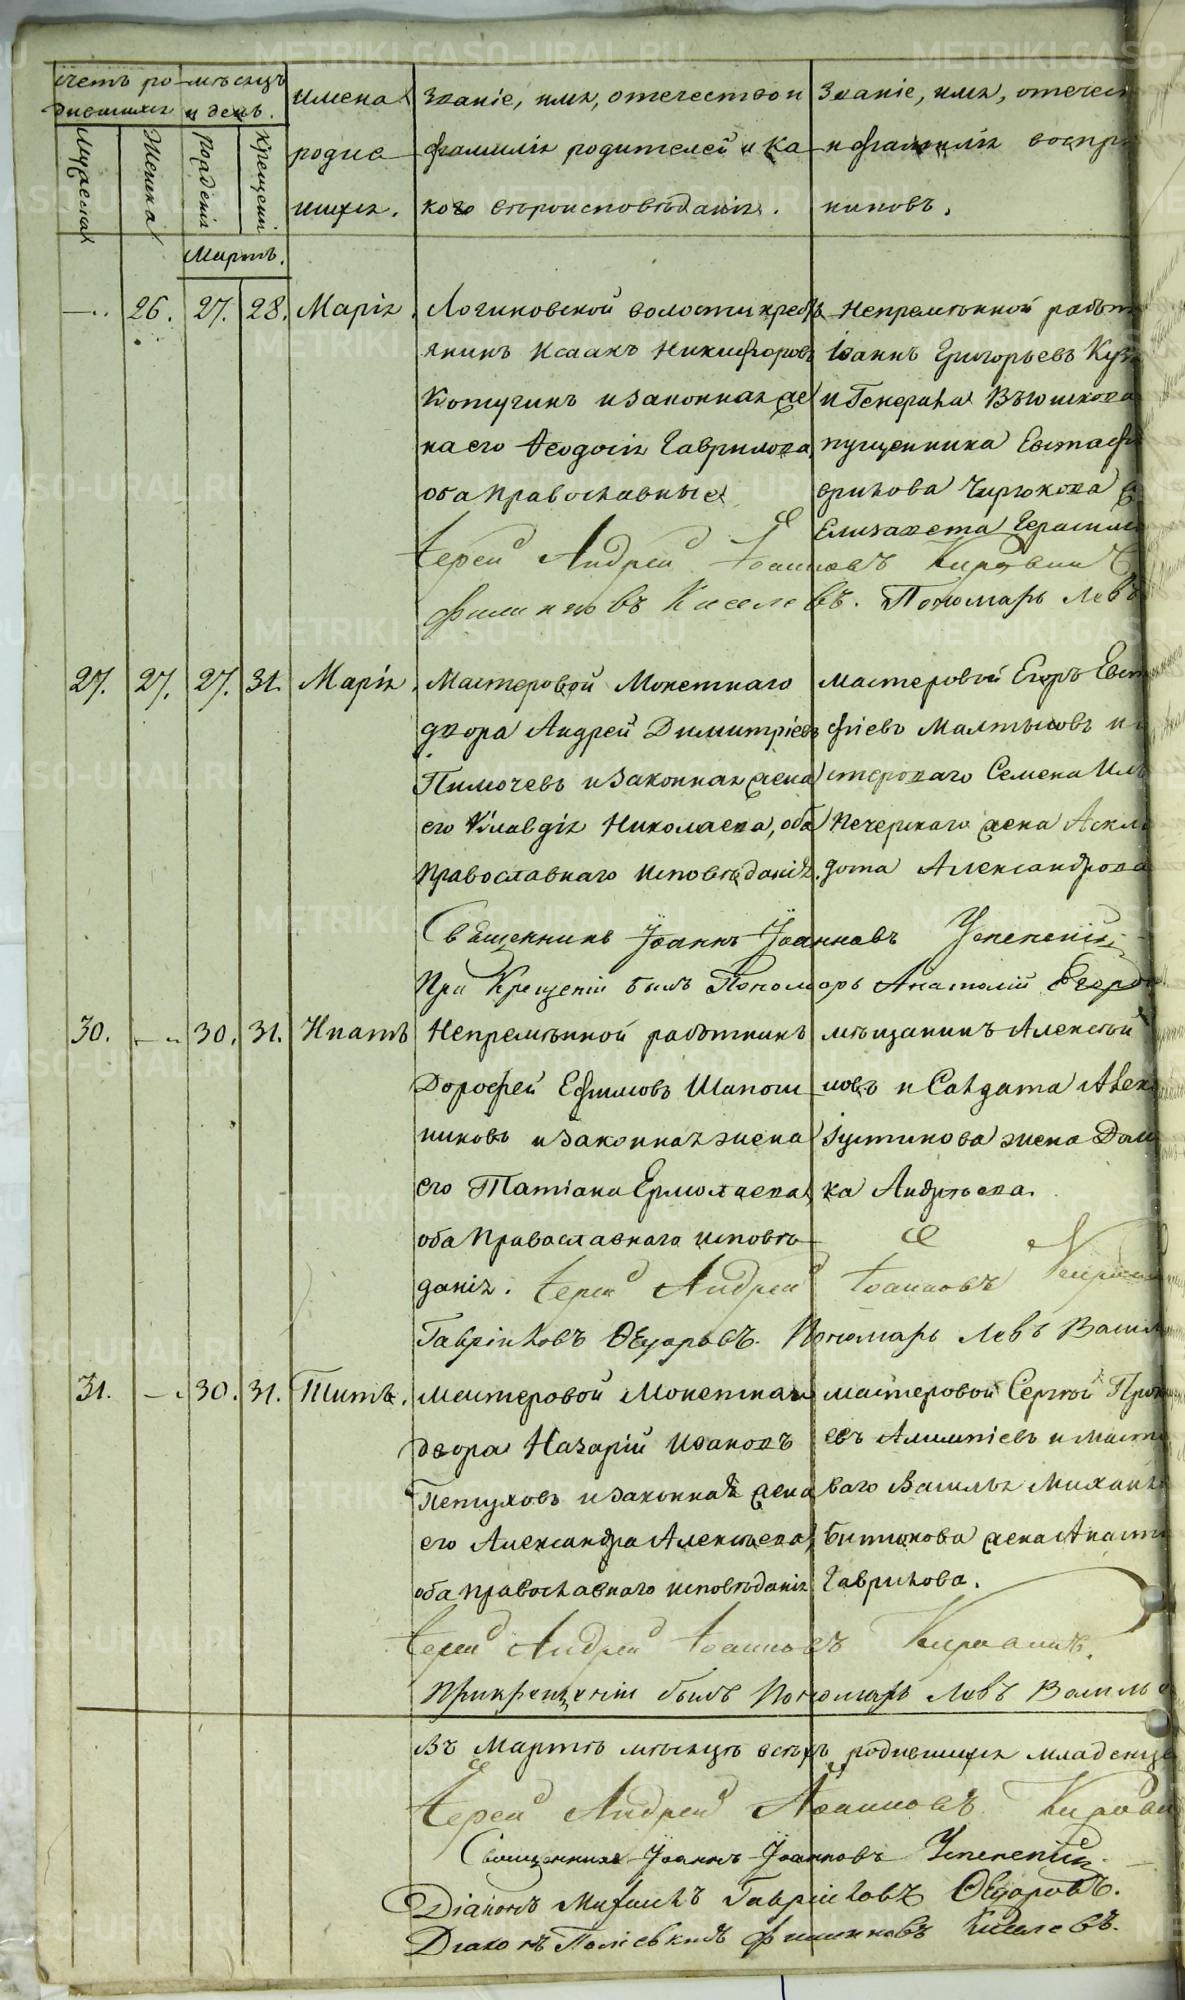 счетъ ро- мѣсяцъ
дившихся и день.
Мужеска Женска рожденія крещенія
имена родив шихся.
Званіе, имя, отечество и фамилія родителей и ка кого вѣроисповѣданія.
Званіе, имя, отечест и фамилія воспрі никовъ.
Мартъ.
26. 27. 28. Марія.
Логиновской волости кресть
янинъ Исаакъ Никифоровъ
Котугинъ и законная же
на его Ѳеодосія Гаврилова,
оба православные
Непремѣнной работ
Іоаннъ Григорьевъ Куз
пущенника Евстаф
Чирюкова
Елизавета Герасимо
Іерей Андрей Іоанновъ
Филипповъ Киселевъ. Пономарь Левъ
27. 27. 27. 31. Марія.
Мастеровой Монетнаго
двора Андрей Димитріевъ
Пимочевъ и законная жена
его Клавдія Николаева, оба
православнаго исповѣданія.
мастеровой Егоръ Евст
фіевъ Малтысовъ и
стероваго Семена
Печерскаго жена Аскли
дота Александрова
Священникъ Іоаннъ Іоанновъ Успенскій
При Крещеніи былъ Пономарь Анатолій Егоров
30. 30. 31. Ипатъ
Непремѣнной работникъ
Дорофей Ефимовъ Шапош
никовъ и законная жена
его Татіана Ермолаева,
оба Православнаго исповѣ
данія.
мѣщанинъ Алексѣй
новъ и Салдата Алек
Іустинова жена Дом
ка Андреева.
Іерей Андрей Іоанновъ
Гавріиловъ Ѳедоровъ. Пономарь Левъ Васил
31. 30. 31. Титъ.
мастеровой Монетнаго
двора Назарій Ивановъ
Петуховъ и законная жена
его Александра Алексѣева,
оба православнаго исповѣданія
мастеровой Сергѣй Прок
евъ Алимпіевъ и масте
ваго Василья Михайл
Битюкова жена Анаст
Гаврилова.
Іерей Андрей Іоанновъ
При крещеніи былъ Пономарь Левъ Василье
Въ Мартѣ мѣсяцѣ всѣхъ родившихся младенце
Іерей Андрей Іоанновъ
Священникъ Іоаннъ Іоанновъ Успенскій
Діаконъ Михаилъ Гавріиловъ Ѳедоровъ.
Діаконъ Филипповъ Киселевъ.
METRIKI.GASO-URAL.RU